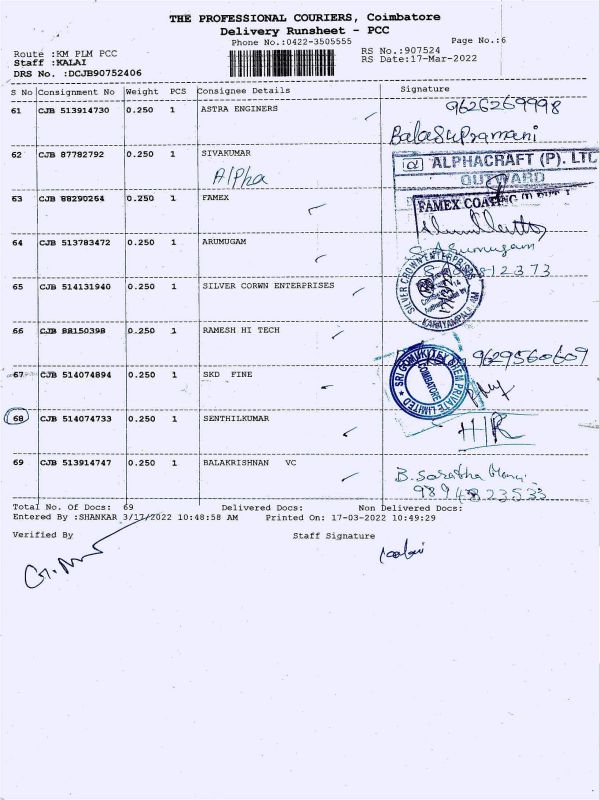 THE PROFESSIONAL COURIERS, Coimbatore
Delivery Runsheet - PCC
Phone No.:0422-3505555 Page No.:6
Route :KM PLM PCC RS No.:907524
Staff :KALAI RS Date:17-Mar-2022
DRS No. :DCJB90752406
S No Consignment No Weight PCS Consignee Details Signature
61 CJB 513914730 0.250 1 ASTRA ENGINERS 9626269998
62 CJB 87782792 0.250 1 SIVAKUMAR
@ ALPHACRAFT (P). LTD
Alpha OUTWARD
63 CJB 88290264 0.250 1 FAMEX FAMEX COATING
64 CJB 513783472 0.250 1 ARUMUGAM S. Arumugam
65 CJB 514131940 0.250 1 SILVER CORWN ENTERPRISES SILVER CROWN ENTERPRISES
66 CJB 88150398 0.250 1 RAMESH HI TECH
9629560609
67 CJB 514074894 0.250 1 SKD FINE COIMBATORE PRIVATE LIMITED
68 CJB 514074733 0.250 1 SENTHILKUMAR
69 CJB 513914747 0.250 1 BALAKRISHNAN VC
9894823533
Total No. Of Docs: 69 Delivered Docs: Non Delivered Docs:
Entered By :SHANKAR 3/17/2022 10:48:58 AM Printed On: 17-03-2022 10:49:29
Verified By Staff Signature